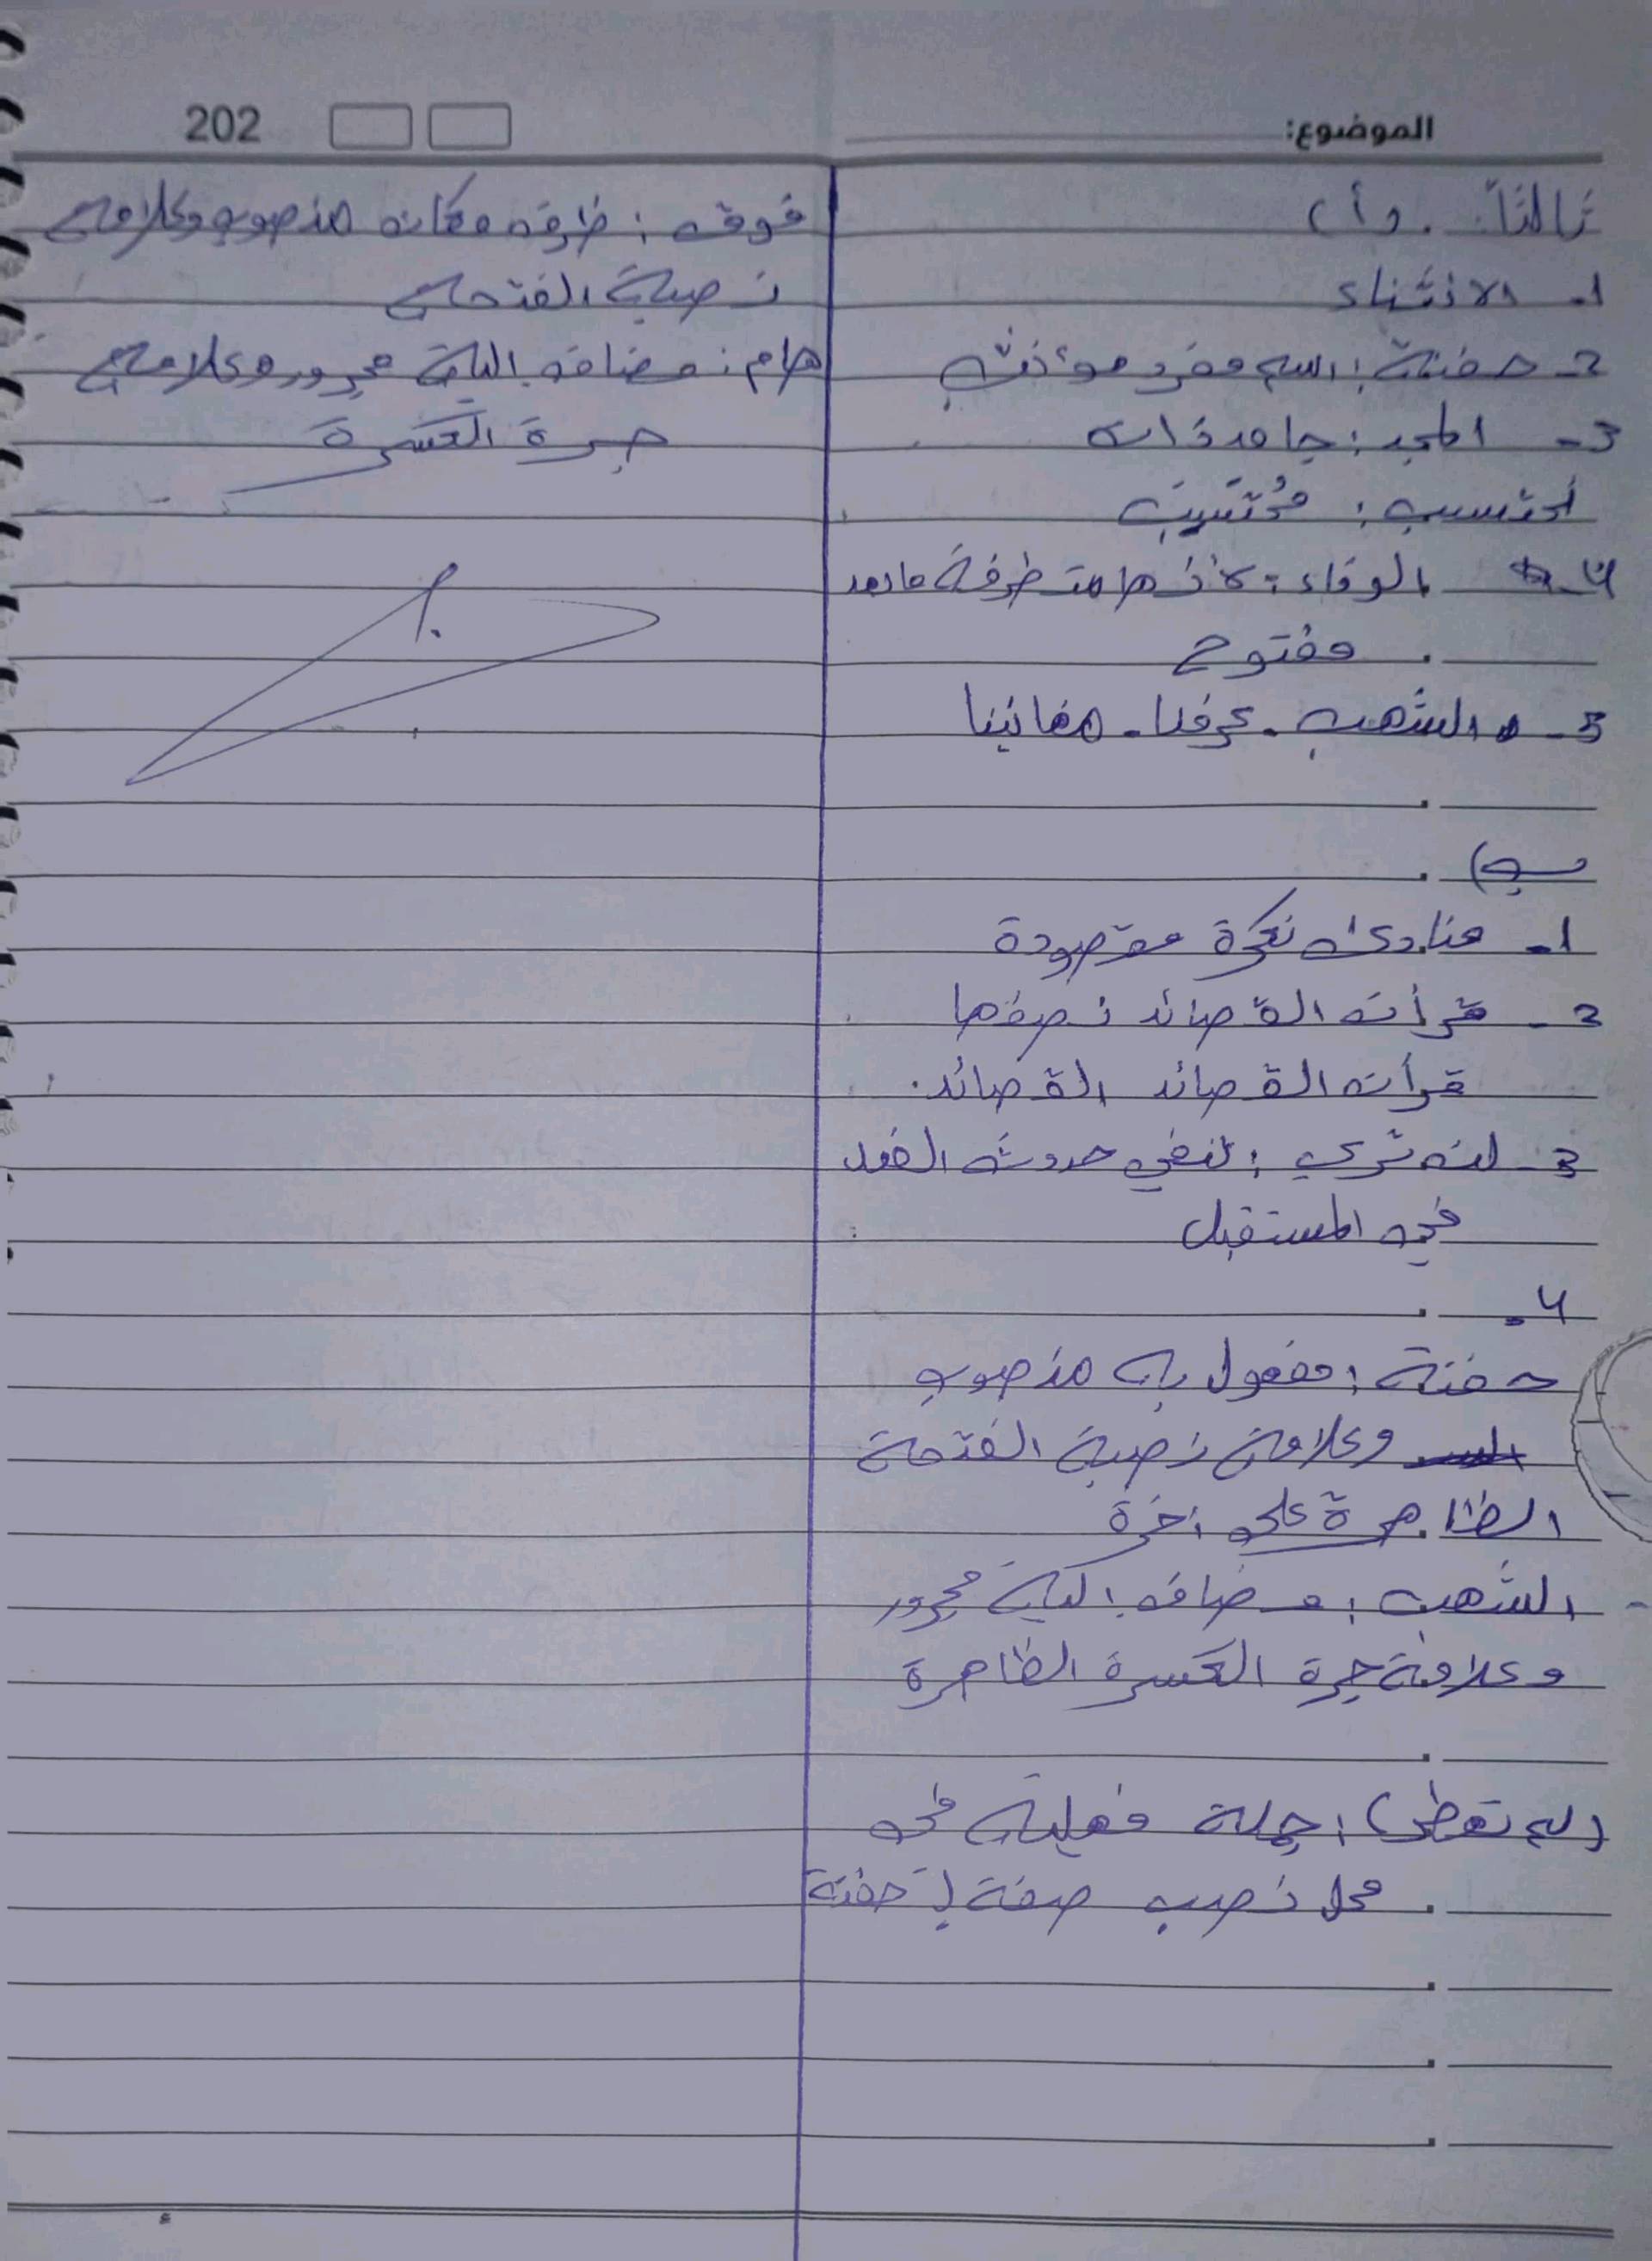 الموضوع:
202
ثالثاً. (أ)
1- الانثناء
2- حفنة: اسم مفرد مؤنث
3- المجد: جامد ذات
أحتسب: مُحْتَسِبَ
4- الوفاء: لأنها متطرفة ما بعد
مفتوح
5- الشهب. عرفنا. مغانينا
ب)
1- منادى نكرة مقصودة
2- قرأت القصائد نصفها
قرأت القصائد القصائد.
3- لن تري: لنفي حدوث الفعل
في المستقبل
4-
حفنة: مفعول به منصوب
وعلامة نصبة الفتحة
الظاهرة على اخرة
الشهب: مضاف الية مجرور
وعلامة جرة الكسرة الظاهرة
(لم تعطى): جملة فعلية في
محل نصب صفة لـ حفنة
فوق: ظرف مكان منصوب وعلامة
نصبة الفتحة
هام: مضاف الية مجرور وعلامة
جرة الكسرة